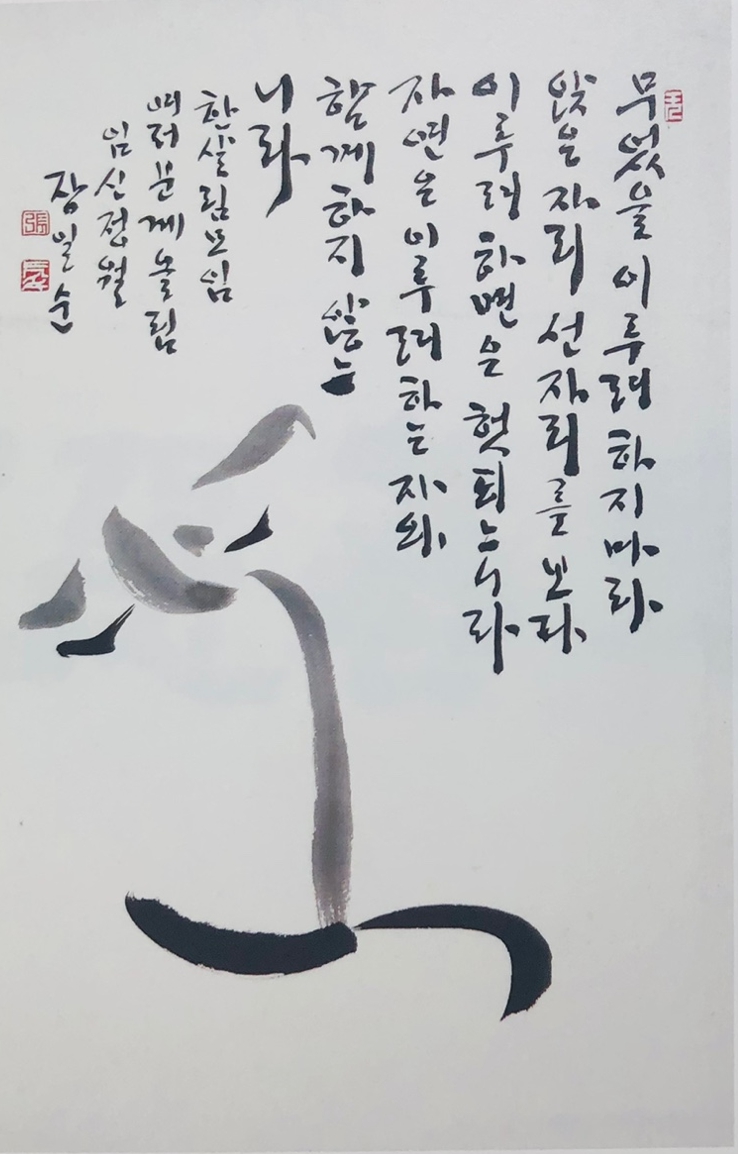 무엇을 이루려 하지 마라
앉은 자리 선자리를 보라
이루려 하면은 헛되느니라
자연은 이루려하는 자와
함께하지 않느
니라
한살림모임
여러분께 올림
임신정월
장일순
張